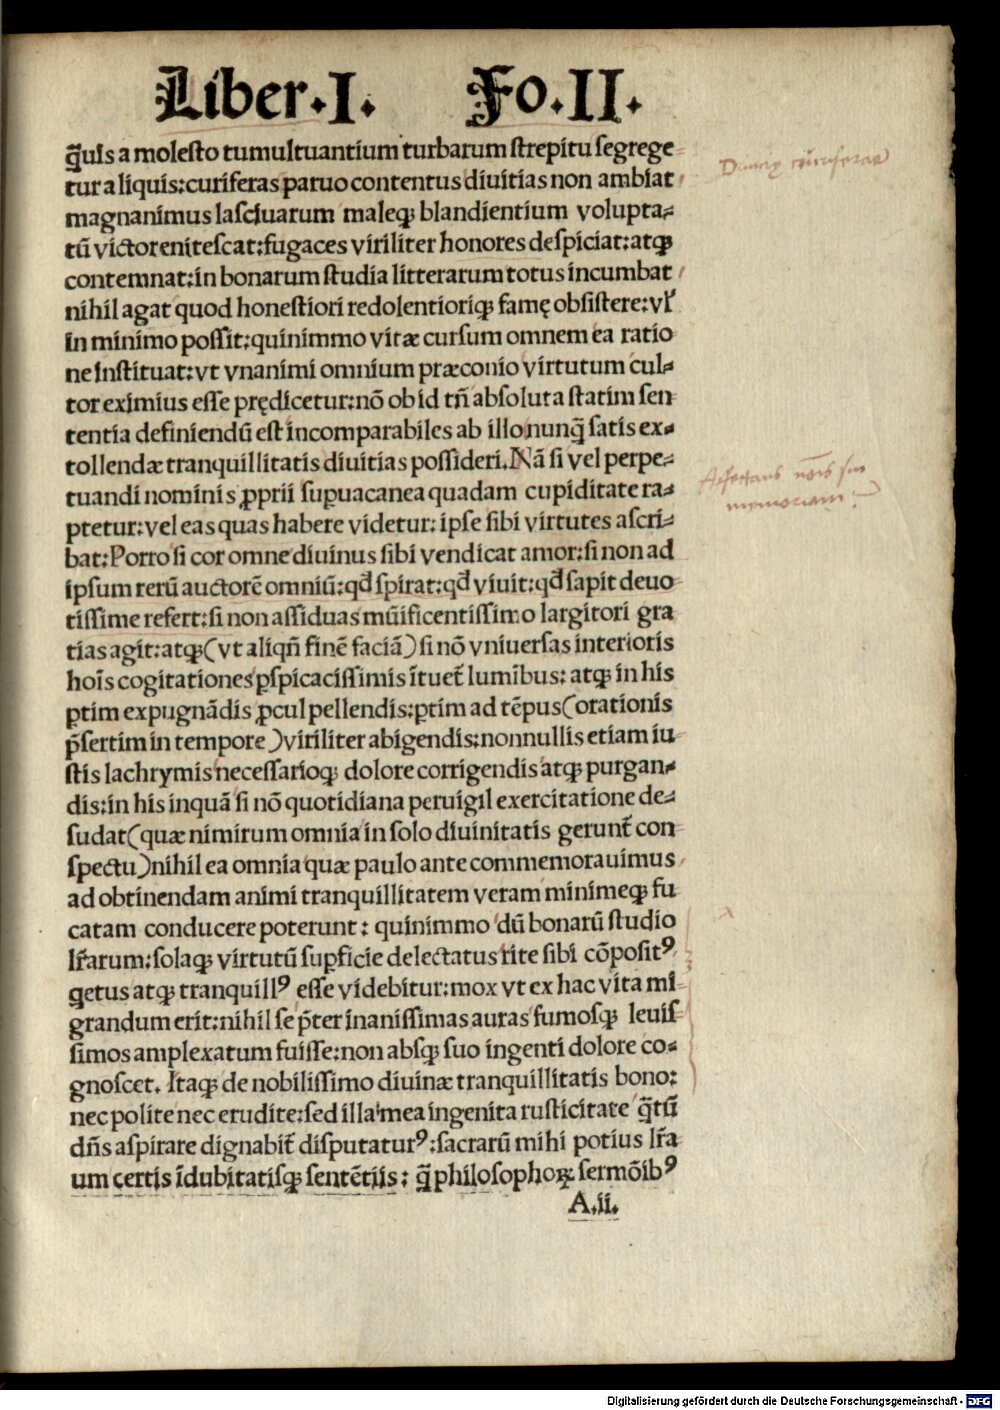 Liber.I. Fo.II.
q̃uis a molesto tumultuantium turbarum strepitu segrege
tur aliquis: curiferas paruo contentus diuitias non ambiat
magnanimus lasciuarum maleqꝫ blandientium volupta-
tũ victor enitescat: fugaces viriliter honores despiciat: atqꝫ
contemnat: in bonarum studia litterarum totus incumbat
nihil agat quod honestiori redolentioriqꝫ famę obsistere: vl̃
in minimo possit: quinimmo vitæ cursum omnem ea ratio
ne instituat: vt vnanimi omnium præconio virtutum cul-
tor eximius esse prędicetur: nõ ob id tñ absoluta statim sen
tentia definiendũ est incomparabiles ab illo nunq̃ satis ex-
tollendæ tranquillitatis diuitias possideri. Nã si vel perpe-
tuandi nominis ꝓprii suꝑuacanea quadam cupiditate ra-
ptetur: vel eas quas habere videtur: ipse sibi virtutes ascri-
bat: Porro si cor omne diuinus sibi vendicat amor: si non ad
ipsum rerũ auctorẽ omniũ: qd̃ spirat: qd̃ viuit: qd̃ sapit deuo
tissime refert: si non assiduas mũificentissimo largitori gra
tias agit: atqꝫ (vt aliqñ finẽ faciã) si nõ vniuersas interioris
hoĩs cogitationes ꝑspicacissimis ĩtuet̃ luminibus: atqꝫ in his
ꝑtim expugnãdis ꝓcul pellendis: ꝑtim ad tẽpus (orationis
p̃sertim in tempore) viriliter abigendis: nonnullis etiam iu
stis lachrymis necessarioqꝫ dolore corrigendis atqꝫ purgan-
dis: in his inquã si nõ quotidiana peruigil exercitatione de-
sudat (quæ nimirum omnia in solo diuinitatis gerunt̃ con
spectu) nihil ea omnia quæ paulo ante commemorauimus
ad obtinendam animi tranquillitatem veram minimeqꝫ fu
catam conducere poterunt: quinimmo dũ bonarũ studio
lr̃arum: solaqꝫ virtutũ suꝑficie delectatus rite sibi cõpositꝰ
qetus atqꝫ tranquillꝰ esse videbitur: mox vt ex hac vita mi
grandum erit: nihil se p̃ter inanissimas auras fumosqꝫ leuis
simos amplexatum fuisse: non absqꝫ suo ingenti dolore co-
gnoscet. Itaqꝫ de nobilissimo diuinæ tranquillitatis bono:
nec polite nec erudite: sed illa mea ingenita rusticitate q̃tũ
dñs aspirare dignabit̃ disputaturꝰ: sacrarũ mihi potius lr̃a
um certis ĩdubitatisqꝫ sentẽtiis: q̃ philosophoꝝ sermõibꝰ
A.ii.
memoriam
Digitalisierung gefördert durch die Deutsche Forschungsgemeinschaft - DFG